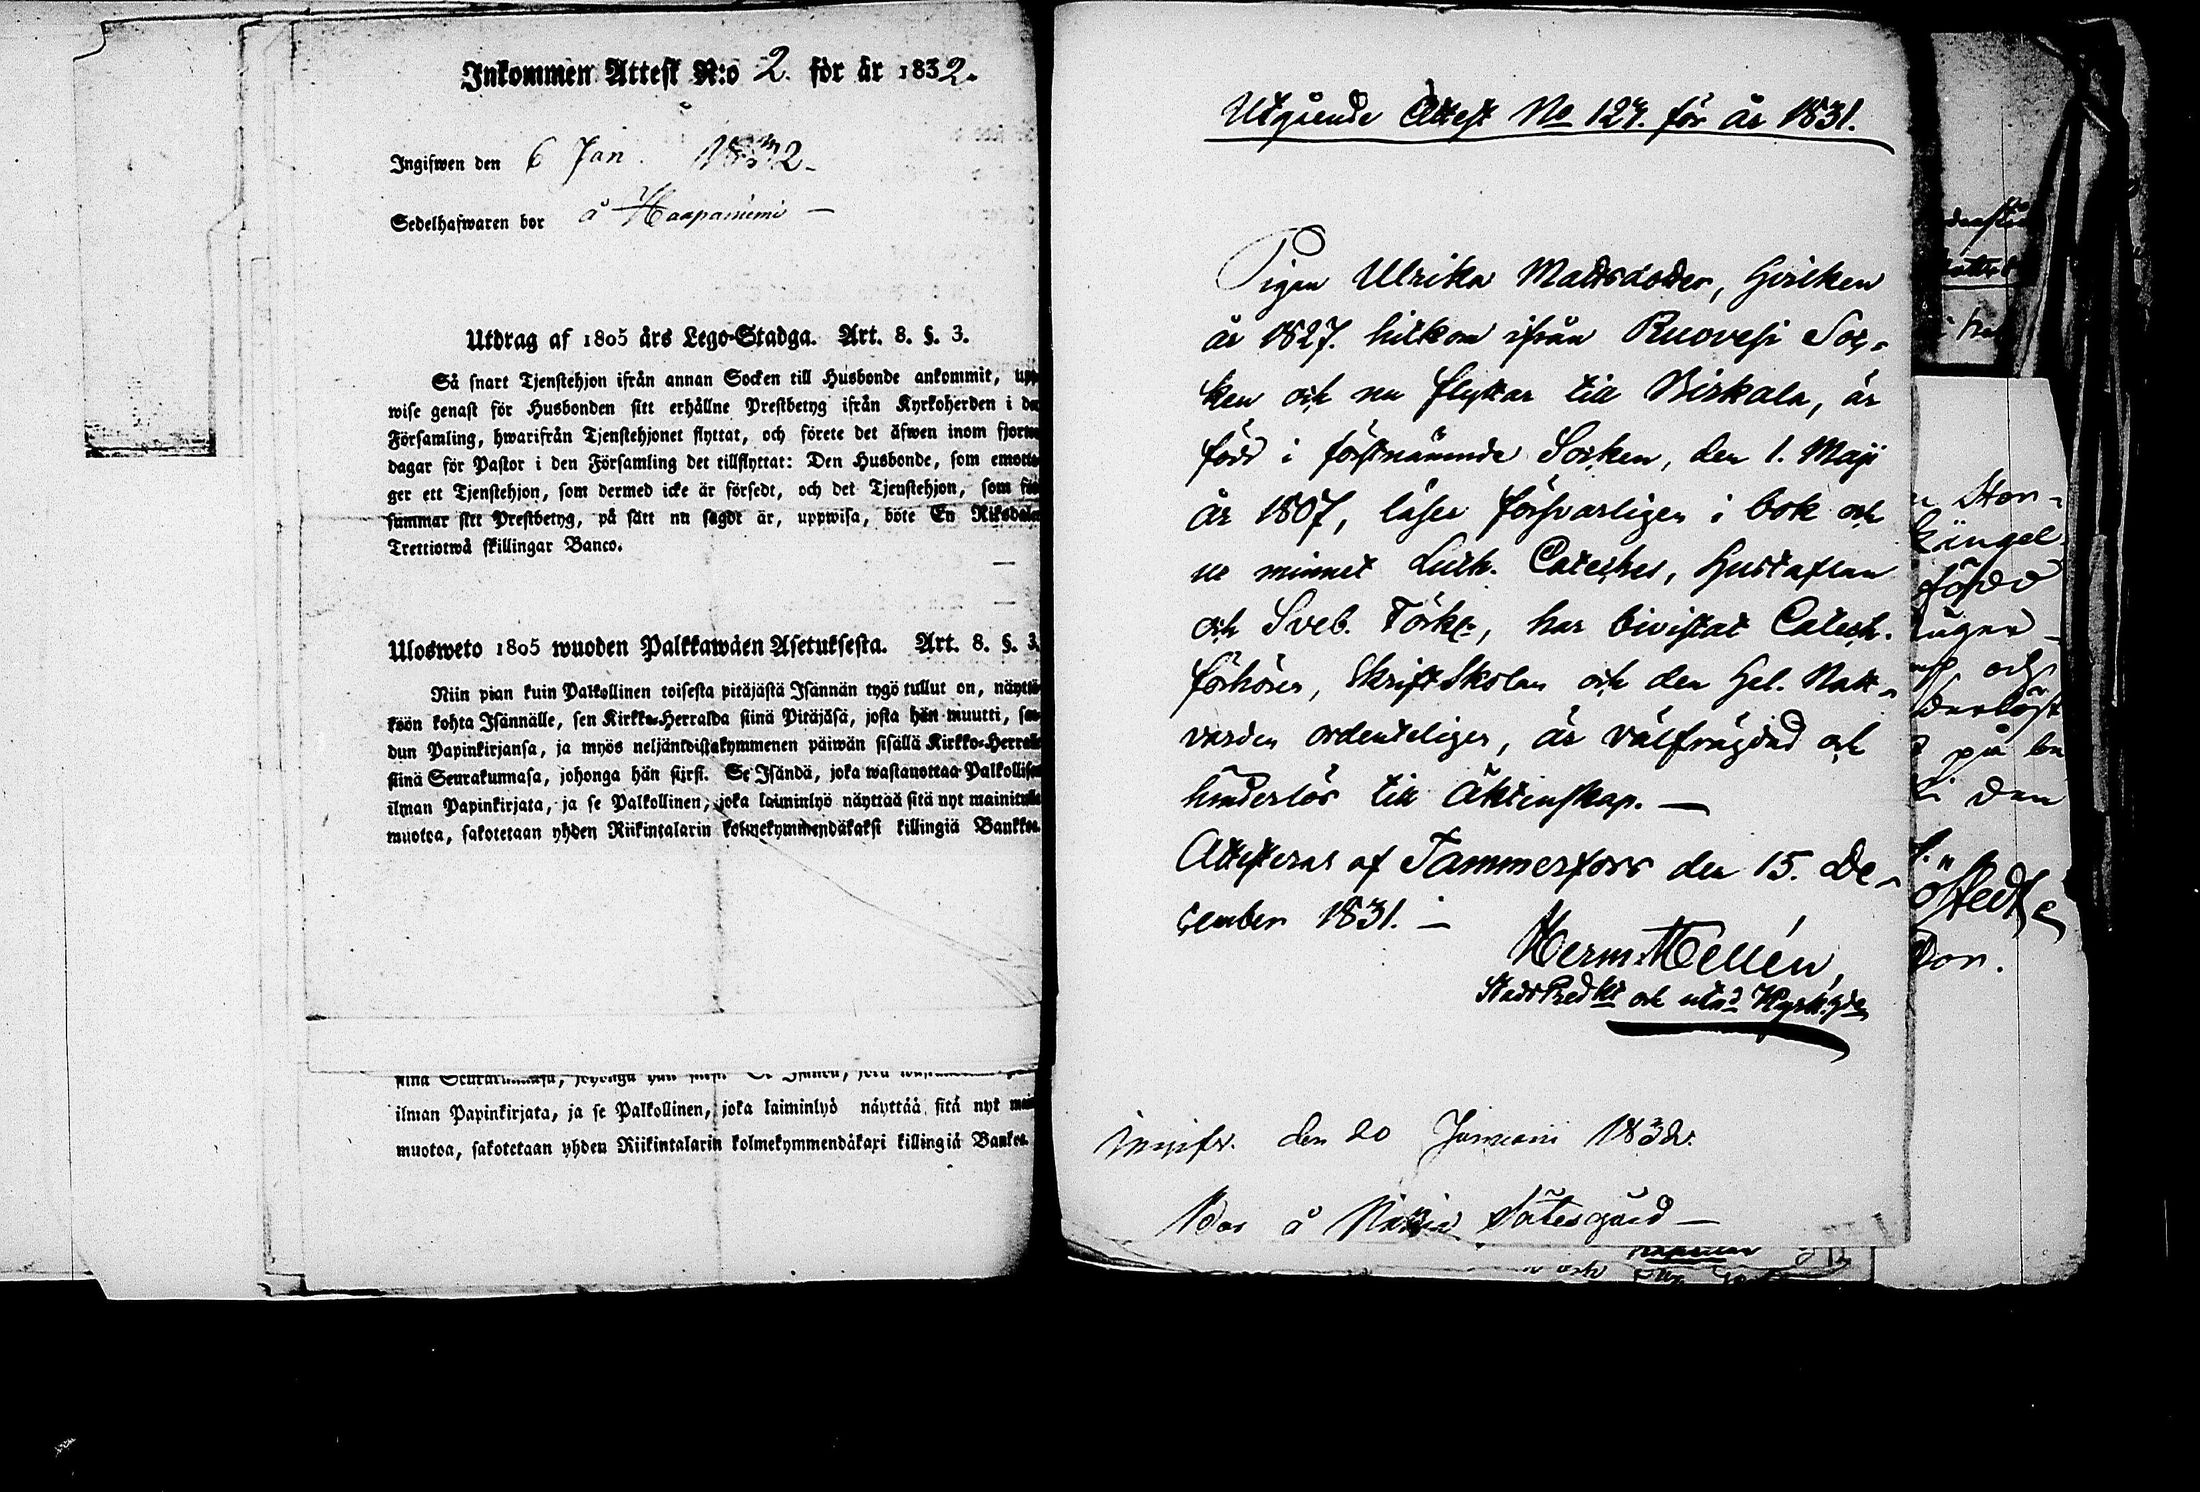 Inkommen Attest N:o 2. för år 1832.
Ingifwen den 6 Jan. 1832
Sedelhafwaren bor å Haapaniemi —
Utdrag af 1805 års Lego-Stadga. Art. 8. §. 3.
Så snart Tjenstehjon ifrån annan Socken till Husbonde ankommit, upp-
wise genast för Husbonden sitt erhållne Prestbetyg ifrån Kyrkoherden i den
Församling, hwarifrån Tjenstehjonet flyttat, och förete det äfwen inom fjorton
dagar för Pastor i den Församling det tillflyttat: Den Husbonde, som emotta-
ger ett Tjenstehjon, som dermed icke är försedt, och det Tjenstehjon, som för-
summar sitt Prestbetyg, på sätt nu sagdt är, uppwisa, böte En Riksdaler
Trettiotwå skillingar Banco.
Ulosweto 1805 wuoden Palkkawäen Asetuksesta. Art. 8. §. 3.
Niin pian kuin Palkollinen toisesta pitäjästä Isännän tygö tullut on, näyttä-
köön kohta Isännälle, sen Kirkko-Herralda siinä Pitäjäsä, josta hän muutti, saa-
dun Papinkirjansa, ja myös neljäntoistakymmenen päiwän sisällä Kirkko-Herralle
siinä Seurakunnasa, johonga hän siirsi. Se Isändä, joka wastanottaa Palkollisen
ilman Papinkirjata, ja se Palkollinen, joka laiminlyö näyttää sitä nyt mainitulla
muotoa, sakotetaan yhden Riikintalarin kolmekymmendäkaksi killingiä Bankkoa.
siinä Seurakunnasa, johonga hän siirsi. Se Isändä, joka
ilman Papinkirjata, ja se Palkollinen, joka laiminlyö näyttää sitä nyt
muotoa, sakotetaan yhden Riikintalarin kolmekymmendäkaxi killingiä Bankoa.
Utgående Attest No 127. för år 1831.
Pigan Ulrika Mattsdotter, hvilken
år 1827. hitkom ifrån Ruovesi Soc-
ken och nu flyttar till Birkala, är
född i förstnämnde Socken, den 1. Maji
år 1807, läser försvarligen i bok och
ur minnet Luth. Cateches, Hustaflan
och Sveb. Förkl:, har bivistat Catech.
förhören, Skriftskolan och den Hel. Natt-
varden ordenteligen, är välfrägdad och
hinderlös till Äktenskap. —
Attesteras af Tammerfors den 15. De-
cember 1831. —
Herm: Hellén,
och
den 20 Januarii 1832.
Bor å Säteigård —
Stor-
född
och
på
den